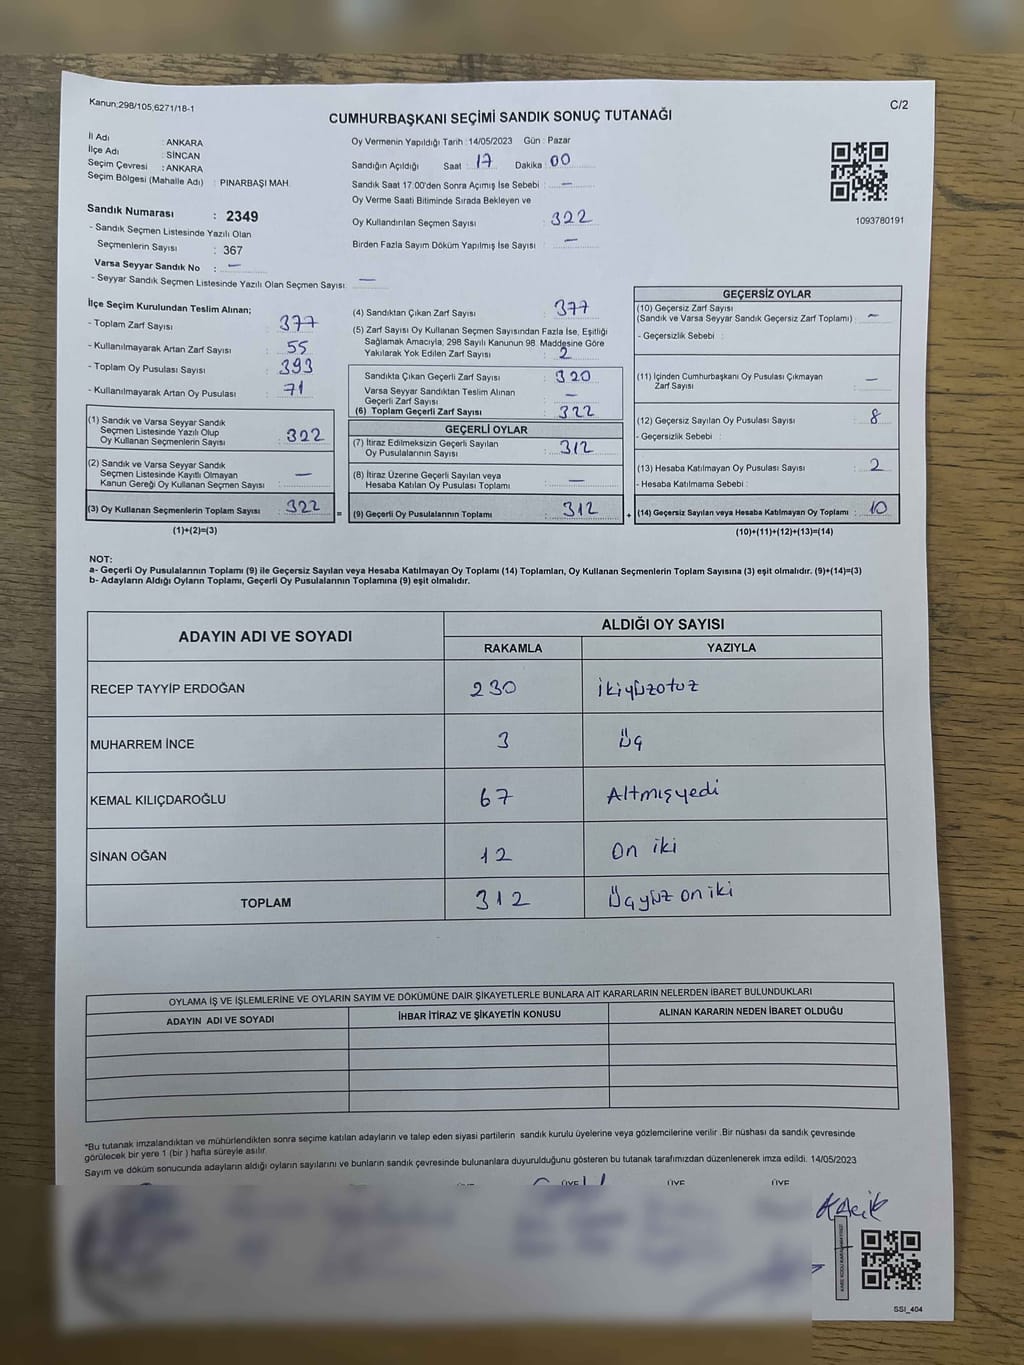 Kanun:298/105,6271/18-1
C/2
CUMHURBAŞKANI SEÇİMİ SANDIK SONUÇ TUTANAĞI
İl Adı : ANKARA
İlçe Adı : SİNCAN
Seçim Çevresi : ANKARA
Seçim Bölgesi (Mahalle Adı) : PINARBAŞI MAH.
Oy Vermenin Yapıldığı Tarih :14/05/2023 Gün : Pazar
Sandığın Açıldığı Saat : 17 Dakika : 00
Sandık Saat 17.00'den Sonra Açımış İse Sebebi : —
Oy Verme Saati Bitiminde Sırada Bekleyen ve
Oy Kullandırılan Seçmen Sayısı : 322
Birden Fazla Sayım Döküm Yapılmış İse Sayısı : —
1093780191
Sandık Numarası : 2349
- Sandık Seçmen Listesinde Yazılı Olan
Seçmenlerin Sayısı : 367
Varsa Seyyar Sandık No : —
- Seyyar Sandık Seçmen Listesinde Yazılı Olan Seçmen Sayısı: —
İlçe Seçim Kurulundan Teslim Alınan;
- Toplam Zarf Sayısı : 377
- Kullanılmayarak Artan Zarf Sayısı : 55
- Toplam Oy Pusulası Sayısı : 393
- Kullanılmayarak Artan Oy Pusulası : 71
(1) Sandık ve Varsa Seyyar Sandık
Seçmen Listesinde Yazılı Olup
Oy Kullanan Seçmenlerin Sayısı : 322
(2) Sandık ve Varsa Seyyar Sandık
Seçmen Listesinde Kayıtlı Olmayan
Kanun Gereği Oy Kullanan Seçmen Sayısı : —
(3) Oy Kullanan Seçmenlerin Toplam Sayısı : 322
(1)+(2)=(3)
(4) Sandıktan Çıkan Zarf Sayısı : 377
(5) Zarf Sayısı Oy Kullanan Seçmen Sayısından Fazla İse, Eşitliği
Sağlamak Amacıyla; 298 Sayılı Kanunun 98. Maddesine Göre
Yakılarak Yok Edilen Zarf Sayısı : 2
Sandıkta Çıkan Geçerli Zarf Sayısı : 320
Varsa Seyyar Sandıktan Teslim Alınan
Geçerli Zarf Sayısı : —
(6) Toplam Geçerli Zarf Sayısı : 322
GEÇERLİ OYLAR
(7) İtiraz Edilmeksizin Geçerli Sayılan
Oy Pusulalarının Sayısı : 312
(8) İtiraz Üzerine Geçerli Sayılan veya
Hesaba Katılan Oy Pusulası Toplamı : —
= (9) Geçerli Oy Pusulalarının Toplamı : 312
GEÇERSİZ OYLAR
(10) Geçersiz Zarf Sayısı
(Sandık ve Varsa Seyyar Sandık Geçersiz Zarf Toplamı) : —
- Geçersizlik Sebebi :
(11) İçinden Cumhurbaşkanı Oy Pusulası Çıkmayan
Zarf Sayısı : —
(12) Geçersiz Sayılan Oy Pusulası Sayısı : 8
- Geçersizlik Sebebi :
(13) Hesaba Katılmayan Oy Pusulası Sayısı : 2
- Hesaba Katılmama Sebebi :
+ (14) Geçersiz Sayılan veya Hesaba Katılmayan Oy Toplamı : 10
(10)+(11)+(12)+(13)=(14)
NOT:
a- Geçerli Oy Pusulalarının Toplamı (9) ile Geçersiz Sayılan veya Hesaba Katılmayan Oy Toplamı (14) Toplamları, Oy Kullanan Seçmenlerin Toplam Sayısına (3) eşit olmalıdır. (9)+(14)=(3)
b- Adayların Aldığı Oyların Toplamı, Geçerli Oy Pusulalarının Toplamına (9) eşit olmalıdır.
ADAYIN ADI VE SOYADI
ALDIĞI OY SAYISI
RAKAMLA YAZIYLA
RECEP TAYYİP ERDOĞAN 230 ikiyüzotuz
MUHARREM İNCE 3 Üç
KEMAL KILIÇDAROĞLU 67 Altmışyedi
SİNAN OĞAN 12 On iki
TOPLAM 312 Üçyüz on iki
OYLAMA İŞ VE İŞLEMLERİNE VE OYLARIN SAYIM VE DÖKÜMÜNE DAİR ŞİKAYETLERLE BUNLARA AİT KARARLARIN NELERDEN İBARET BULUNDUKLARI
ADAYIN ADI VE SOYADI İHBAR İTİRAZ VE ŞİKAYETİN KONUSU ALINAN KARARIN NEDEN İBARET OLDUĞU
*Bu tutanak imzalandıktan ve mühürlendikten sonra seçime katılan adayların ve talep eden siyasi partilerin sandık kurulu üyelerine veya gözlemcilerine verilir .Bir nüshası da sandık çevresinde
görülecek bir yere 1 (bir ) hafta süreyle asılır.
Sayım ve döküm sonucunda adayların aldığı oyların sayılarını ve bunların sandık çevresinde bulunanlara duyurulduğunu gösteren bu tutanak tarafımızdan düzenlenerek imza edildi. 14/05/2023
ÜYE ÜYE ÜYE
SSI_404